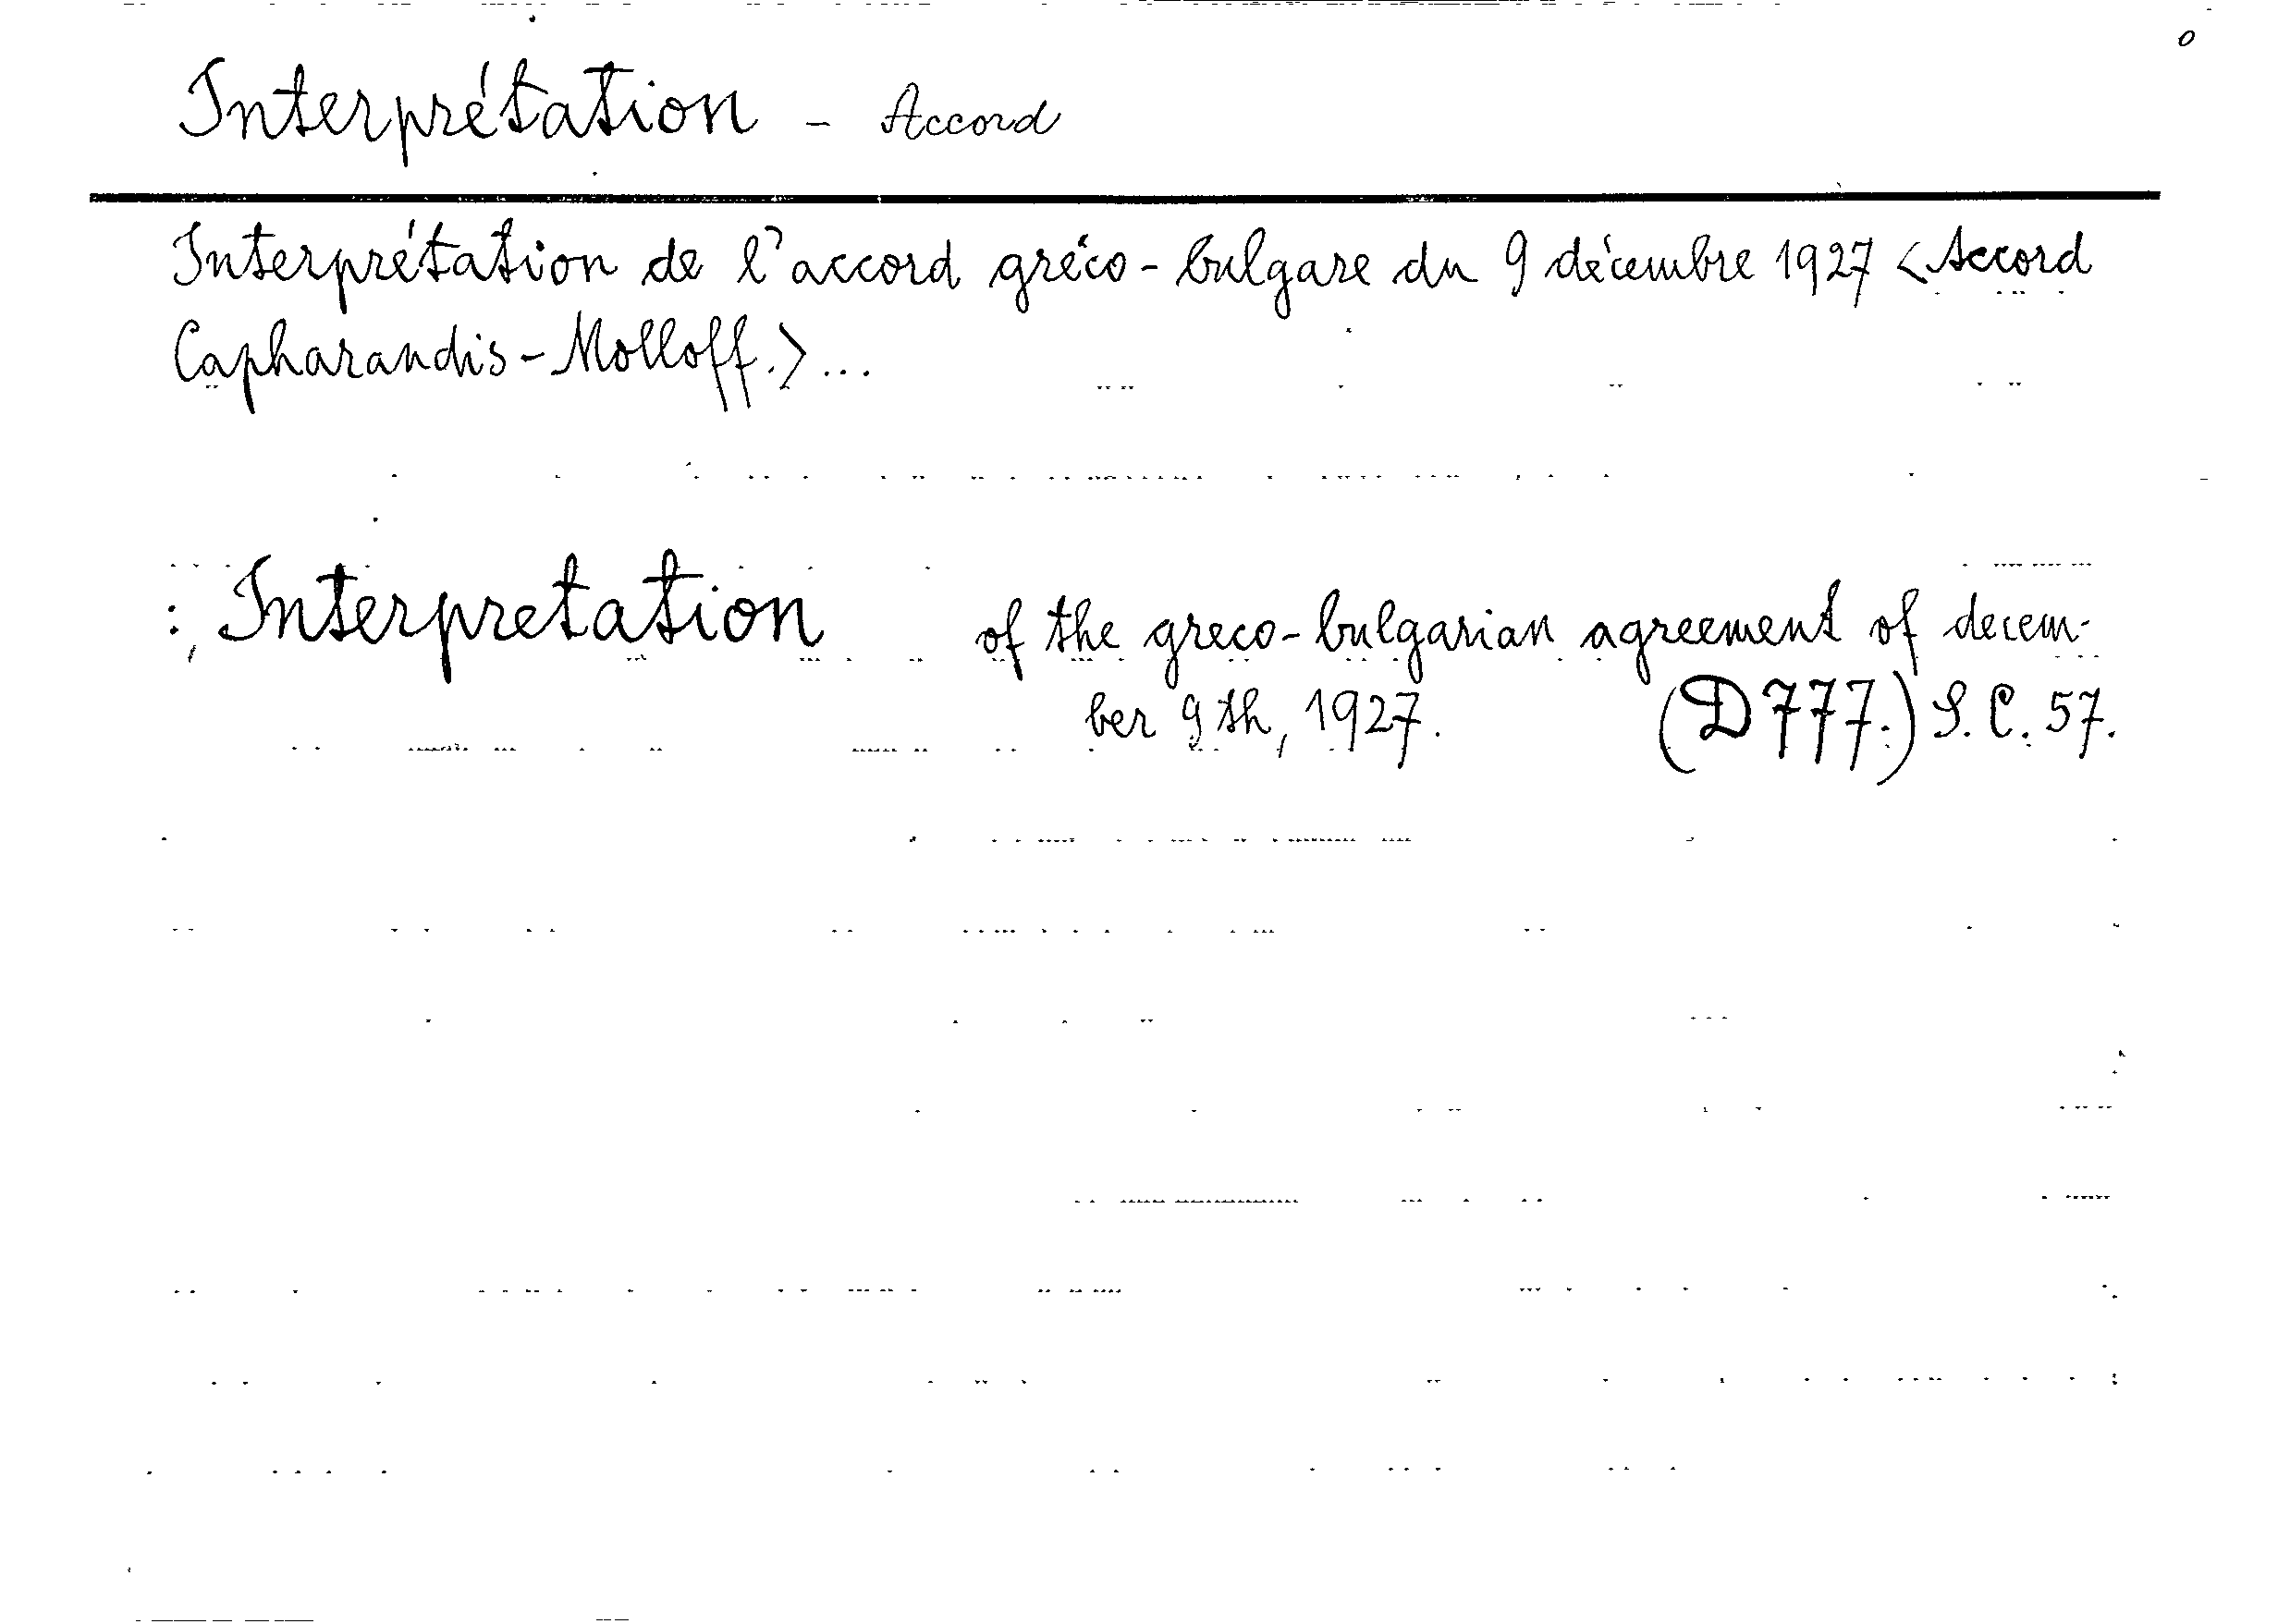 0
Interprétation - Accord
Interprétation de l'accord gréco-bulgare du 9 décembre 1927 <Accord
Capharandis-Molloff.>...
: Interpretation of the greco-bulgarian agreement of decem-
ber 9th, 1927. (D777.) S.C. 57.